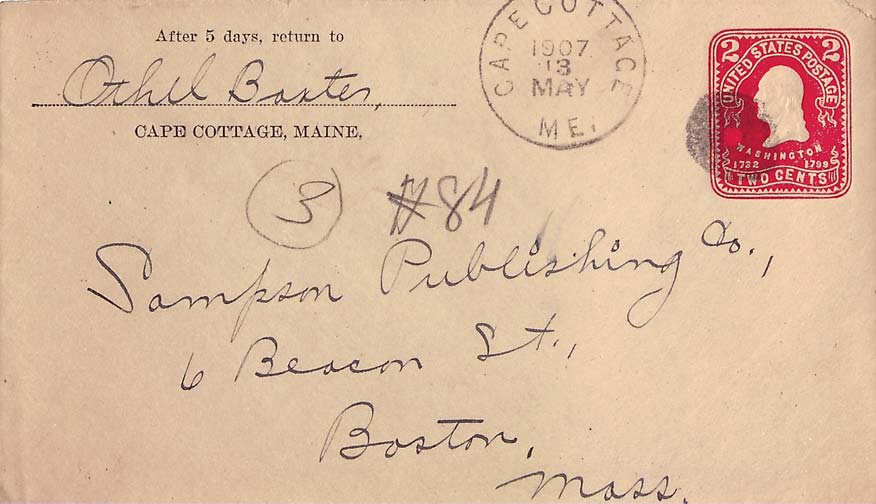 After 5 days, return to
Othel Baxter,
CAPE COTTAGE, MAINE.
CAPE COTTAGE
1907
13
MAY
ME.
2 2
UNITED STATES POSTAGE
WASHINGTON
1732 1799
TWO CENTS
3 #84
Sampson Publishing Co.,
6 Beacon St.,
Boston,
Mass.